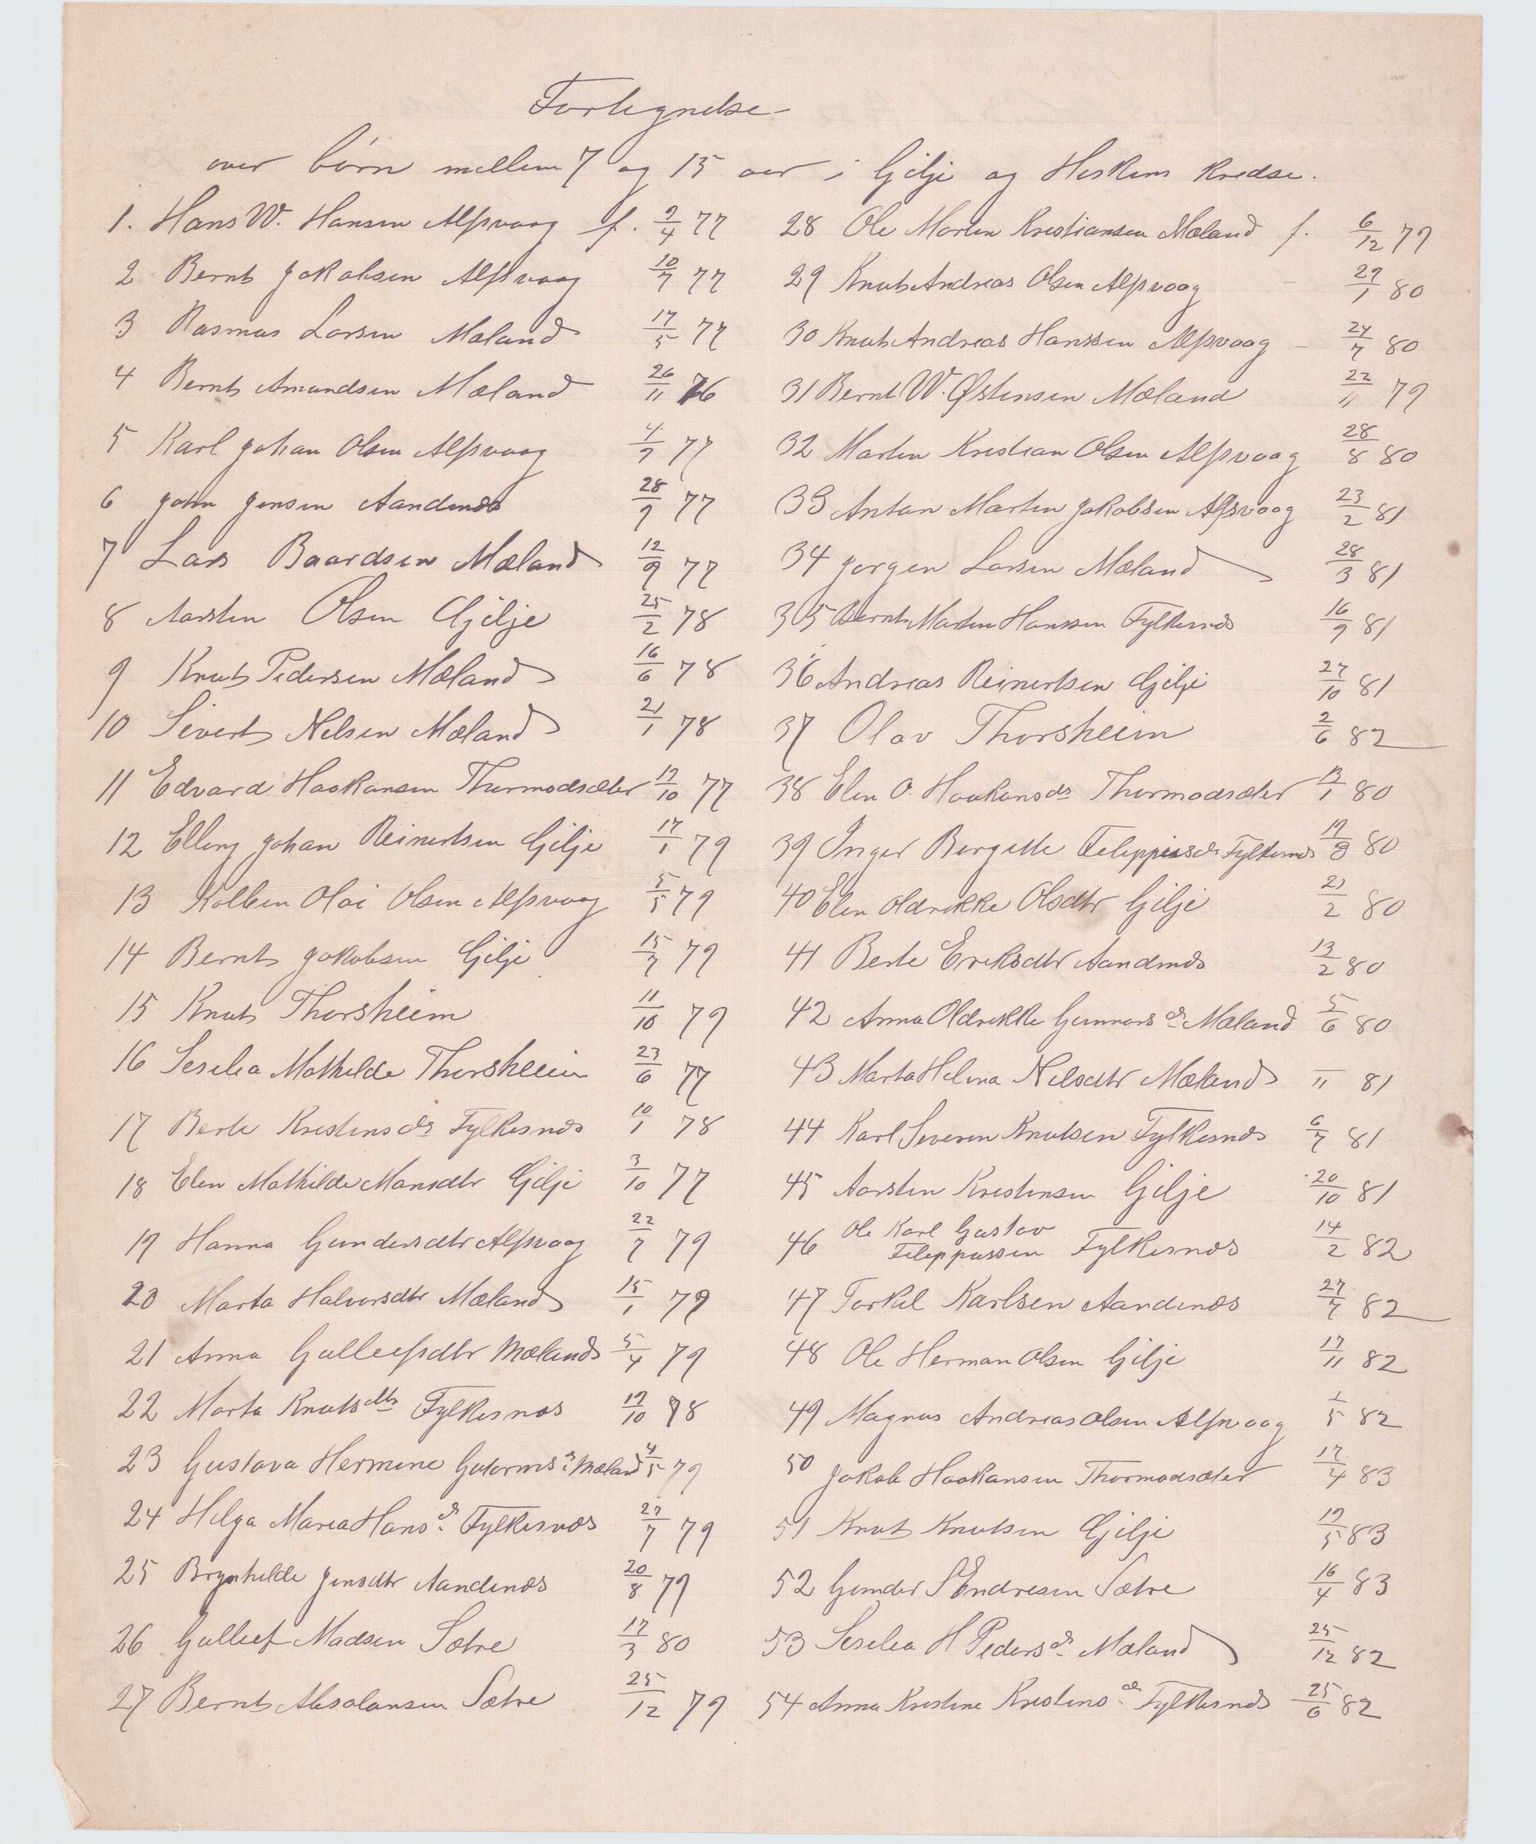 Fortegnelse
over børn mellem 7 og 15 aar i Gilje og Heskem Kredse.
1. Hans W. Hansen Alfsvaag f. 9/4 77
2 Bernt Jakobsen Alfsvaag 10/7 77
3 Rasmus Larsen Mæland 17/5 77
4 Bernt Amundsen Mæland 26/11 76
5 Karl Johan Olsen Alfsvaag 4/7 77
6 John Jensen Aandenæs 28/9 77
7 Lars Baardsen Mæland 12/9 77
8 Aarsten Olsen Gjilje 25/2 78
9 Knut Pedersen Mæland 16/6 78
10 Sivert Nelsen Mæland 21/1 78
11 Edvard Haakansen Thormodsæter 17/10 77
12 Elling Johan Reinertsen Gilje 17/1 79
13 Kolbein Olai Olsen Alfsvaag 5/5 79
14 Bernt Jakobsen Gilje 15/7 79
15 Knut Thorsheim 11/10 79
16 Seselia Mathilde Thorsheim 23/6 77
17 Berte Kristensdr Fylkesnæs 10/1 78
18 Elen Mathilde Monsdtr Gilje 3/10 77
19 Hanna Gundersdtr Alfsvaag 22/7 79
20 Marta Halvorsdtr Mæland 15/1 79
21 Anna Gulleifsdtr Mæland 5/4 79
22 Marta Knutsdtr Fylkesnæs 19/10 78
23 Gustava Hermine Gutormsd. Mæland 4/5 79
24 Helga Maria Hansd. Fylkesnæs 27/7 79
25 Brynhilde Jensdtr Aandenæs 20/8 79
26 Gulleif Madsen Sætre 17/3 80
27 Bernt Absolonsen Sætre 25/12 79
28 Ole Martin Kristiansen Mæland f. 6/12 79
29 Knut Andreas Olsen Alfsvaag 27/1 80
30 Knut Andreas Hanssen Alfsvaag – 24/7 80
31 Bernt W. Østensen Mæland 22/11 79
32 Martin Kristian Olsen Alfsvaag 28/8 80
33 Antan Martin Jakobsen Alfsvaag 23/2 81
34 Jørgen Larsen Mæland 28/3 81
35 Bernt Martin Hanssen Fylkesnæs 16/9 81
36 Andreas Reinertsen Gilje 27/10 81
37 Olav Thorsheim 2/6 82
38 Elen O. Haakonsdr Thormodsæter 13/1 80
39 Inger Bergitte Filippusdr Fylkesnæs 19/8 80
40 Elen Oldrikke Olsdtr Gilje 21/2 80
41 Berte Eriksdtr Aandenæs 13/2 80
42 Anna Oldrikke Gunnarsdr Mæland 5/6 80
43 Marta Helena Nelsdtr Mæland /11 81
44 Karl Severin Knutsen Fylkesnæs 6/7 81
45 Aarsten Kristensen Gilje 20/10 81
46 Ole Karl Gustav Filippussen Fylkesnæs 14/2 82
47 Torkel Karlsen Aandenæs 27/7 82
48 Ole Herman Olsen Gilje 17/11 82
49 Magnus Andreas Olsen Alfsvaag 1/5 82
50 Jakob Haakansen Thormodsæter 17/4 83
51 Knut Knutsen Gilje 19/5 83
52 Gunder S Endresen Sætre 16/4 83
53 Seselia H Pedersd. Mæland 25/12 82
54 Anna Kristine Kristensd. Fylkesnæs 25/6 82